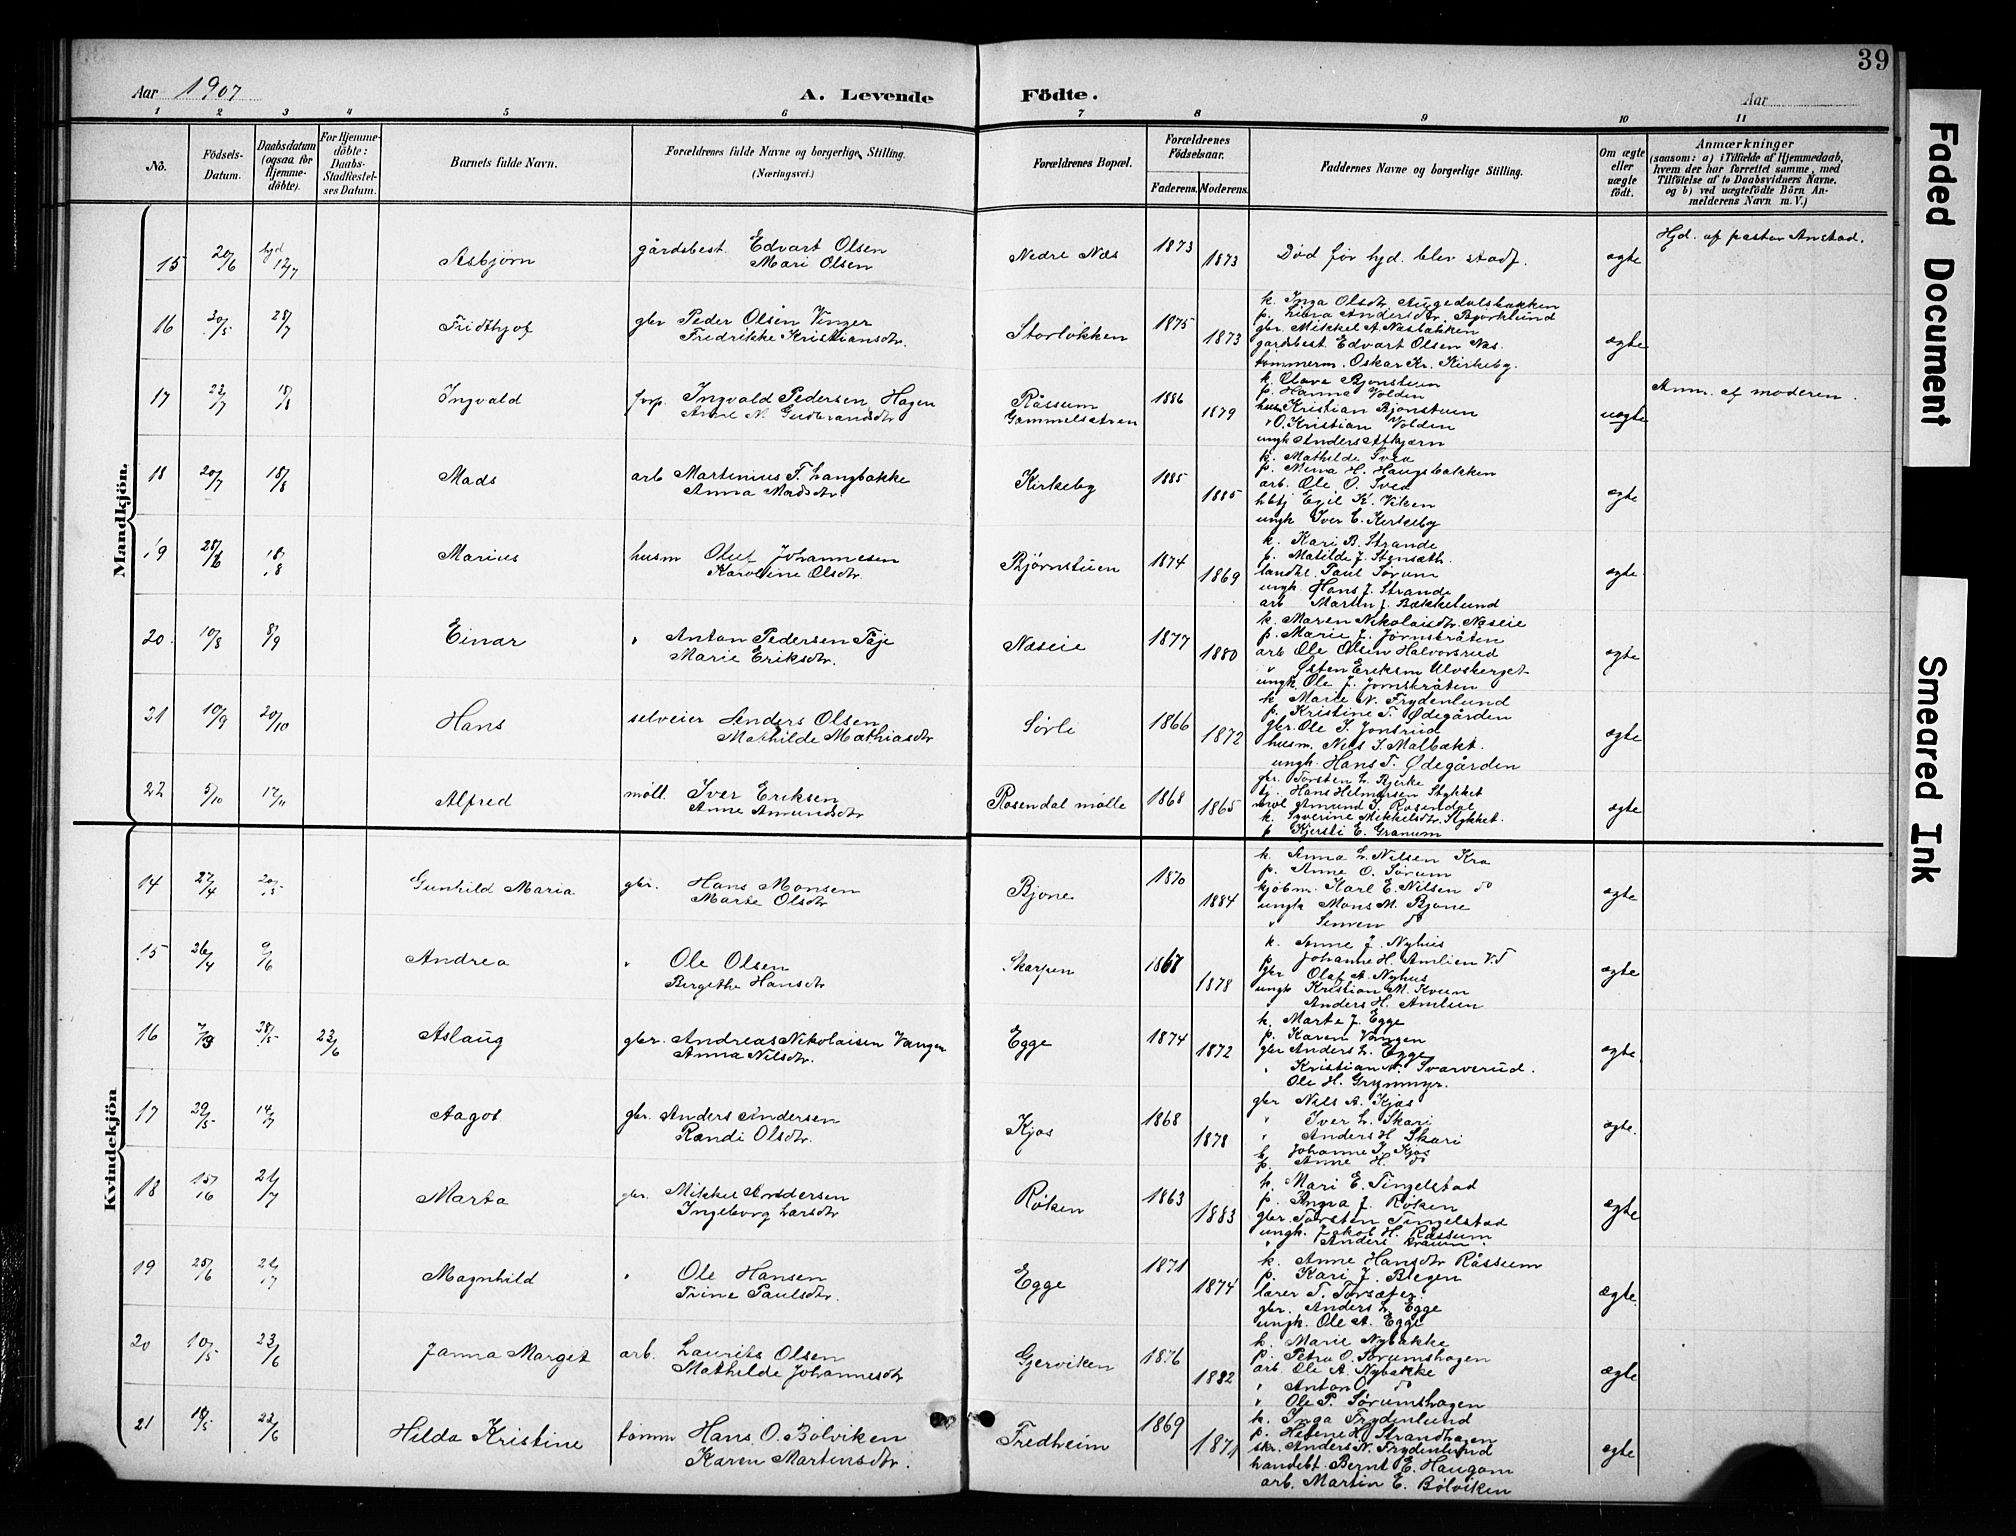 39
Aar 1907
A. Levende Födte.
Aar
1 2 3 4 5 6 7 8 9 10 11
No.
Födsels-Datum.
Daabsdatum (ogsaa for Hjemme-döbte).
For Hjemme-döbte: Daabs-Stadfæstel-ses Datum.
Barnets fulde Navn.
Forældrenes fulde Navne og borgerlige Stilling. (Næringsvei.)
Forældrenes Bopæl.
Forældrenes Födselsaar.
Faderens. Moderens.
Faddernes Navne og borgerlige Stilling.
Om ægte eller uægte födt.
Anmærkninger
(saasom: a) i Tilfælde af Hjemmedaab, hvem der har forrettet samme, med Tilföielse af to Daabsvidners Navne, og b) ved uægtefödte Börn An-melderens Navn m. V.)
Mandkjön.
15 20/6 hjd 12/7 Asbjørn gårdsbest. Edvart Olsen
Mari Olsen
Nedre Næs 1873 1873 Død før hjd. blev stadf. ægte Hjd. af pastor Anstad.
16 30/5 28/7 Fridthjof gbr Peder Olsen Vinger
Fredrikke Kristiansdtr.
Storløkken 1875 1873
k. Inga Olsdtr. Augedalsbakken
p. Lina Andersdtr. Bjørklund
gbr. Mikkel A. Næsbakken
gårdsbest Edvart Olsen Næs.
tømmerm. Oskar Kr. Kirkeby.
ægte
17 22/7 18/8 Ingvald forp. Ingvald Pedersen Hagen
Anne M. Gudbrandsdtr
Råssum
Gammelsætren 1886 1879
k. Olava Bjønstuen
p. Hanna Volden
husm Kristian Bjønstuen
" O. Kristian Volden
ungk Anders
uægte Anm. af moderen.
18 20/7 18/8 Mads arb Martinius T. Langbakke
Anna Madsdtr.
Kirkeby 1885 1885
k. Mathilde Svea
p. Mina H. Haugsbakken
arb. Ole O. Svea
Egil K. Viken
ungk Iver E. Kirkeby
ægte
19 28/6 18/8 Marius husm Oluf Johannesen
Karoline Olsdtr.
Bjørnstuen 1874 1869
k. Kari B. Strande
p. Matilde J. Stensæth
landhl. Paul Sørum
ungk. Hans J. Strande
arb Martin J. Bækkelund
ægte
20 10/8 8/9 Einar " Anton Pedersen Taje
Marie Eriksdtr.
Næseie 1877 1880
k. Maren Nikolaisdtr. Næseie
p. Marie J. Jørnsbråten
arb Ole Olsen Halvorsrud
" Østen Eriksen Ulvsberget
ungk Ole J. Jørnsbråten
ægte
21 10/9 20/10 Hans selveier Anders Olsen
Mathilde Mathiasdtr
Sørli 1866 1872
k. Marte N. Frydenlund
p. Kristine T. Ødegården
gbr. Ole I. Jonsrud
husm. Nils I. Malbækk.
ungk. Hans T. Ødegården
ægte
22 5/10 17/11 Alfred møll. Iver Eriksen
Anne Amundsdtr
Rosendal mølle 1868 1865
gbr. Torsten L. Bjerke
tj. Hans Helmersen Stykket
møl Amund I. Rosendal
k. Syverine Mikkelsdtr. Stykket.
p. Kjersti E. Granum
ægte
Kvindekjön
14 27/4 20/5 Gunhild Maria gbr. Hans Monsen
Marte Olsdtr
Bjone 1870 1884
k. Anna L. Nilsen Kra
p. Anne O. Sørum
kjøbm. Karl E. Nilsen do
ungk Mons M. Bjone
" Simen do
ægte
15 26/4 9/6 Andrea " Ole Olsen
Bergithe Hansdtr
Skarpen 1867 1878
k. Anne J. Nyhus
p. Johanne H. Amlien V.T
gbr Olaf A. Nyhus
ungk Kristian M. Kveen
" Anders H. Amlien
ægte
16 28/5 23/6 Aslaug gbr. Andreas Nikolaisen Vangen
Anna Nilsdtr.
Egge 1874 1872
k. Marte J. Egge
p. Karen Vangen
gbr Anders L. Egge
" Kristian A. Svarverud.
Ole H. Grymmyr.
ægte.
17 29/5 14/7 Aagot gbr. Anders Andersen
Randi Olsdtr.
Kjos 1868 1878
gbr Nils A. Kjos
" Iver L. Skari
" Anders H Skari
k. Johanne I. Kjos
p. Anne H. do
ægte.
18 15/6 21/7 Marta gbr. Mikkel Andersen
Ingeborg Larsdtr
Røken 1863 1883
k. Mari E. Tingelstad
p. Angna J. Røken
gbr. Torsten Tingelstad
ungk. Jakob H. Råssum
" Anders
ægte
19 25/6 21/7 Magnhild " Ole Hansen
Trine Paulsdtr.
Egge 1871 1874
k. Anne Hansdtr Råssum
p. Kari J. Blegen
lærer T. Torsæter.
gbr. Anders L. Egge
ungk. Ole A. Egge
ægte.
20 10/5 23/6 Janna Marget arb. Laurits Olsen
Mathilde Johannesdtr
Gjerviken 1876 1882
k. Marie Nybakke
p. Petra O. Sørumshagen
arb Ole A. Nybakke
" Anton O do
" Ole P. Sørumshagen
ægte
21 18/5 23/6 Hilda Kristine tømm Hans O. Bølviken
Karen Martinsdtr.
Fredheim 1869 1871
k. Inga Frydenlund
p. Helene H. Strandhagen
skr. Anders N. Frydenlund
handelbt. Bernt E. Haugom
arb. Martin E. Bølviken
ægte
Faded Document
Smeared Ink